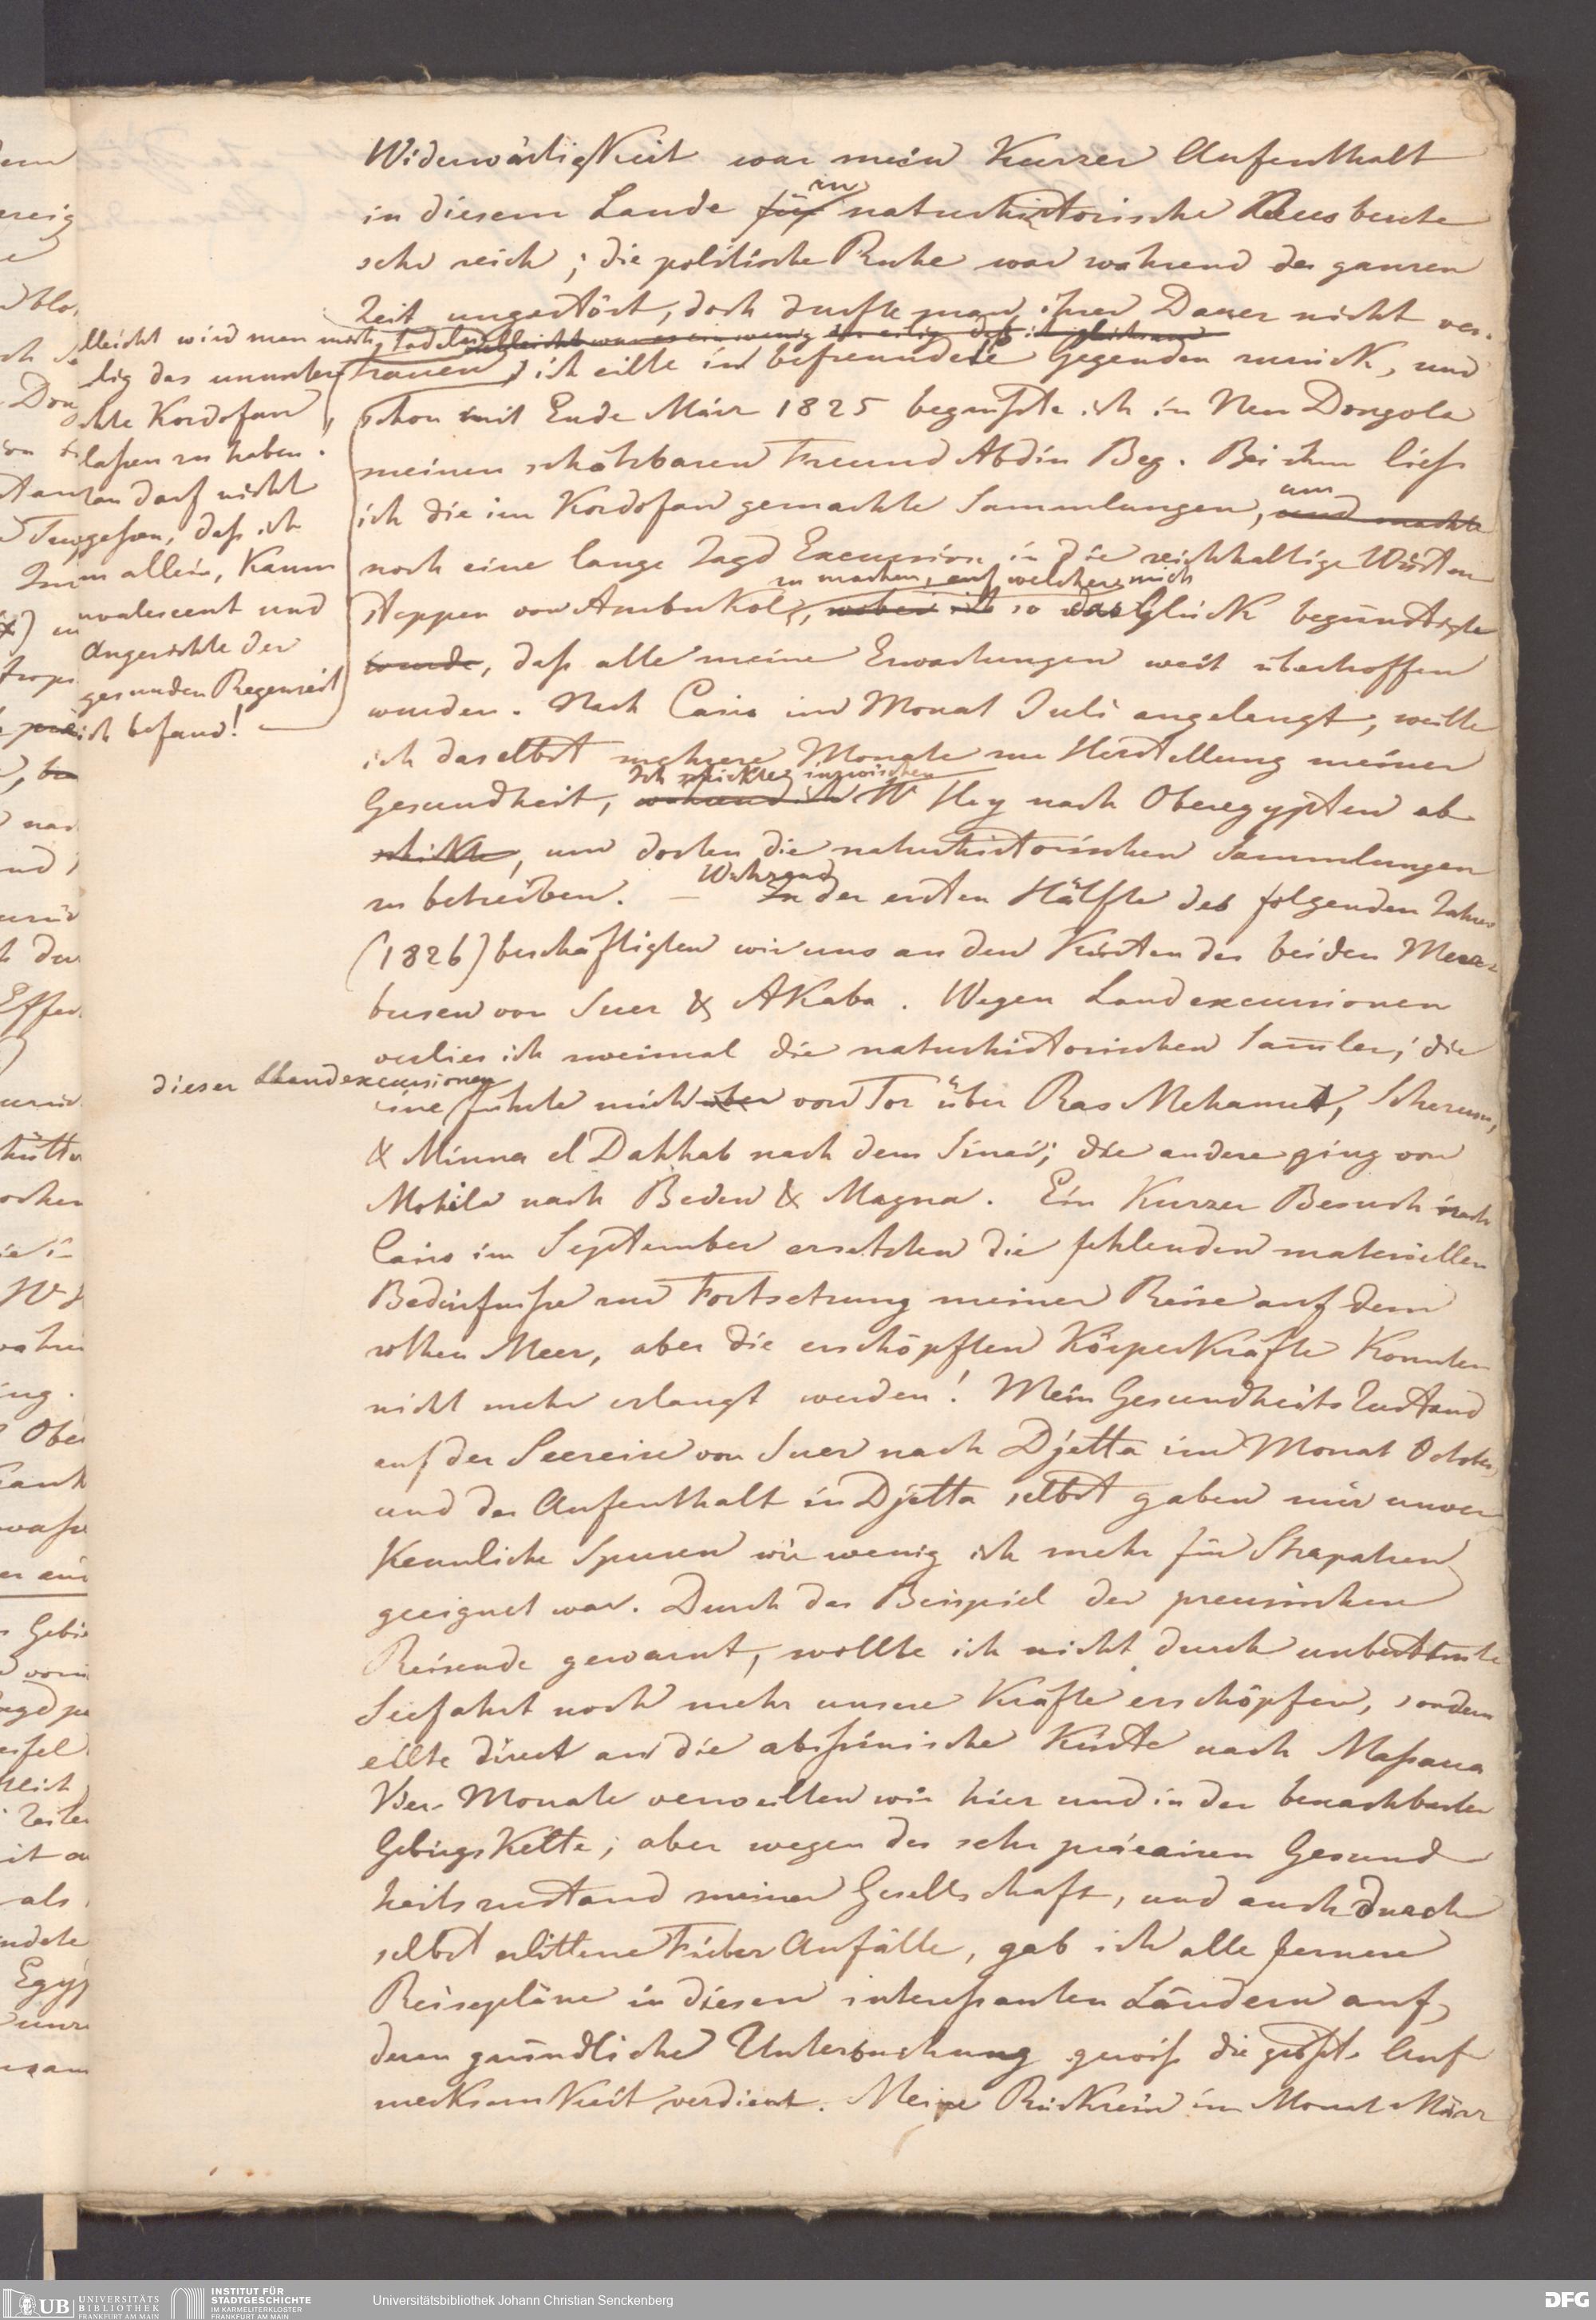 Widerwärtigkeit war mein Kurzer Aufenthalt
in diesem Lande für an naturhistorische Ausbeute
sehr reich; die politische Ruhe war während der ganzen
Zeit ungestört, doch durfte man ihrer Dauer nicht ver-
vielleicht war es ein wenig zu eilig daß ich gleichsam
trauen, ich eilte in befreundete Gegenden zurück, und
schon mit Ende März 1825 begrüßte ich in Neu Dongola
meinen schätzbaren Freund Abdin Beg. Bei ihm ließ
ich die im Kordofan gemachte Sammlungen, und machte um
noch eine lange Jagd Excursion in die reichhaltige Wüsten
zu machen, auf welcher mich
steppen von Ambukol, wobei ich so das Glück begünstigte
wurde, daß alle meine Erwartungen weit übertroffen
wurden. Nach Cairo im Monat Juli angelangt, weilte
ich daselbst mehrere Monate zur Herstellung meiner
Ich schickte inzwischen
Gesundheit, während ich W Hey nach Oberegypten ab
schickte, um dorten die naturhistorischen Sammlungen
zu betreiben. — Während In der ersten Hälfte des folgenden Jahres
(1826) beschäftigten wir uns an den Küsten der beiden Meer-
busen von Suez & Akaba. Wegen Landexcursionen
verlies ich zweimal die naturhistorischen Samler; die
dieser Landexcursionen
eine führte mich über von Tor über Ras Mehamet, Scherum,
& Minna el Dahhab nach dem Sinai; die andere ging von
Mohila nach Beden & Magna. Ein Kurzer Besuch nach
Cairo im September ersetzten die fehlenden materiellen
Bedürfniße zur Fortsetzung meiner Reise auf dem
rothen Meer, aber die erschöpften Körperkräfte Konnten
nicht mehr erlangt werden! Mein Gesundheits Zustand
auf der Seereise von Suez nach Djetta im Monat October,
und der Aufenthalt in Djetta selbst gaben mir unver
Kennliche Spuren wie wenig ich mehr für Strapatzen
geeignet war. Durch das Beispiel der preusischen
Reisende gewarnt, wollte ich nicht durch unbestimte
Seefahrt noch mehr unsere Kräfte erschöpfen, sondern
eilte direct an die abyssinische Küste nach Maßaua
Vier Monate verweilten wir hier und in der benachbarten
GebirgsKette; aber wegen des sehr präcairen Gesund
heitszustand meiner Gesellschaft, und auch durch
selbst erlittene Fieber Anfälle, gab ich alle fernere
Reisepläne in diesen intereßanten Ländern auf,
deren gründliche Untersuchung gewiß die größte Auf
merksamkeit verdient. Meine Rückreise im Monat März
lleicht wird man mich tadeln
das
chte Kordofan
laßen zu haben.
an darf nicht
geßen, daß ich
allein, Kaum
nvalescent und
Angesichte der
gesunden Regenzeit
ich befand!
UB UNIVERSITÄTS
BIBLIOTHEK
FRANKFURT AM MAIN
INSTITUT FÜR
STADTGESCHICHTE
IM KARMELITERKLOSTER
FRANKFURT AM MAIN
Universitätsbibliothek Johann Christian Senckenberg
DFG